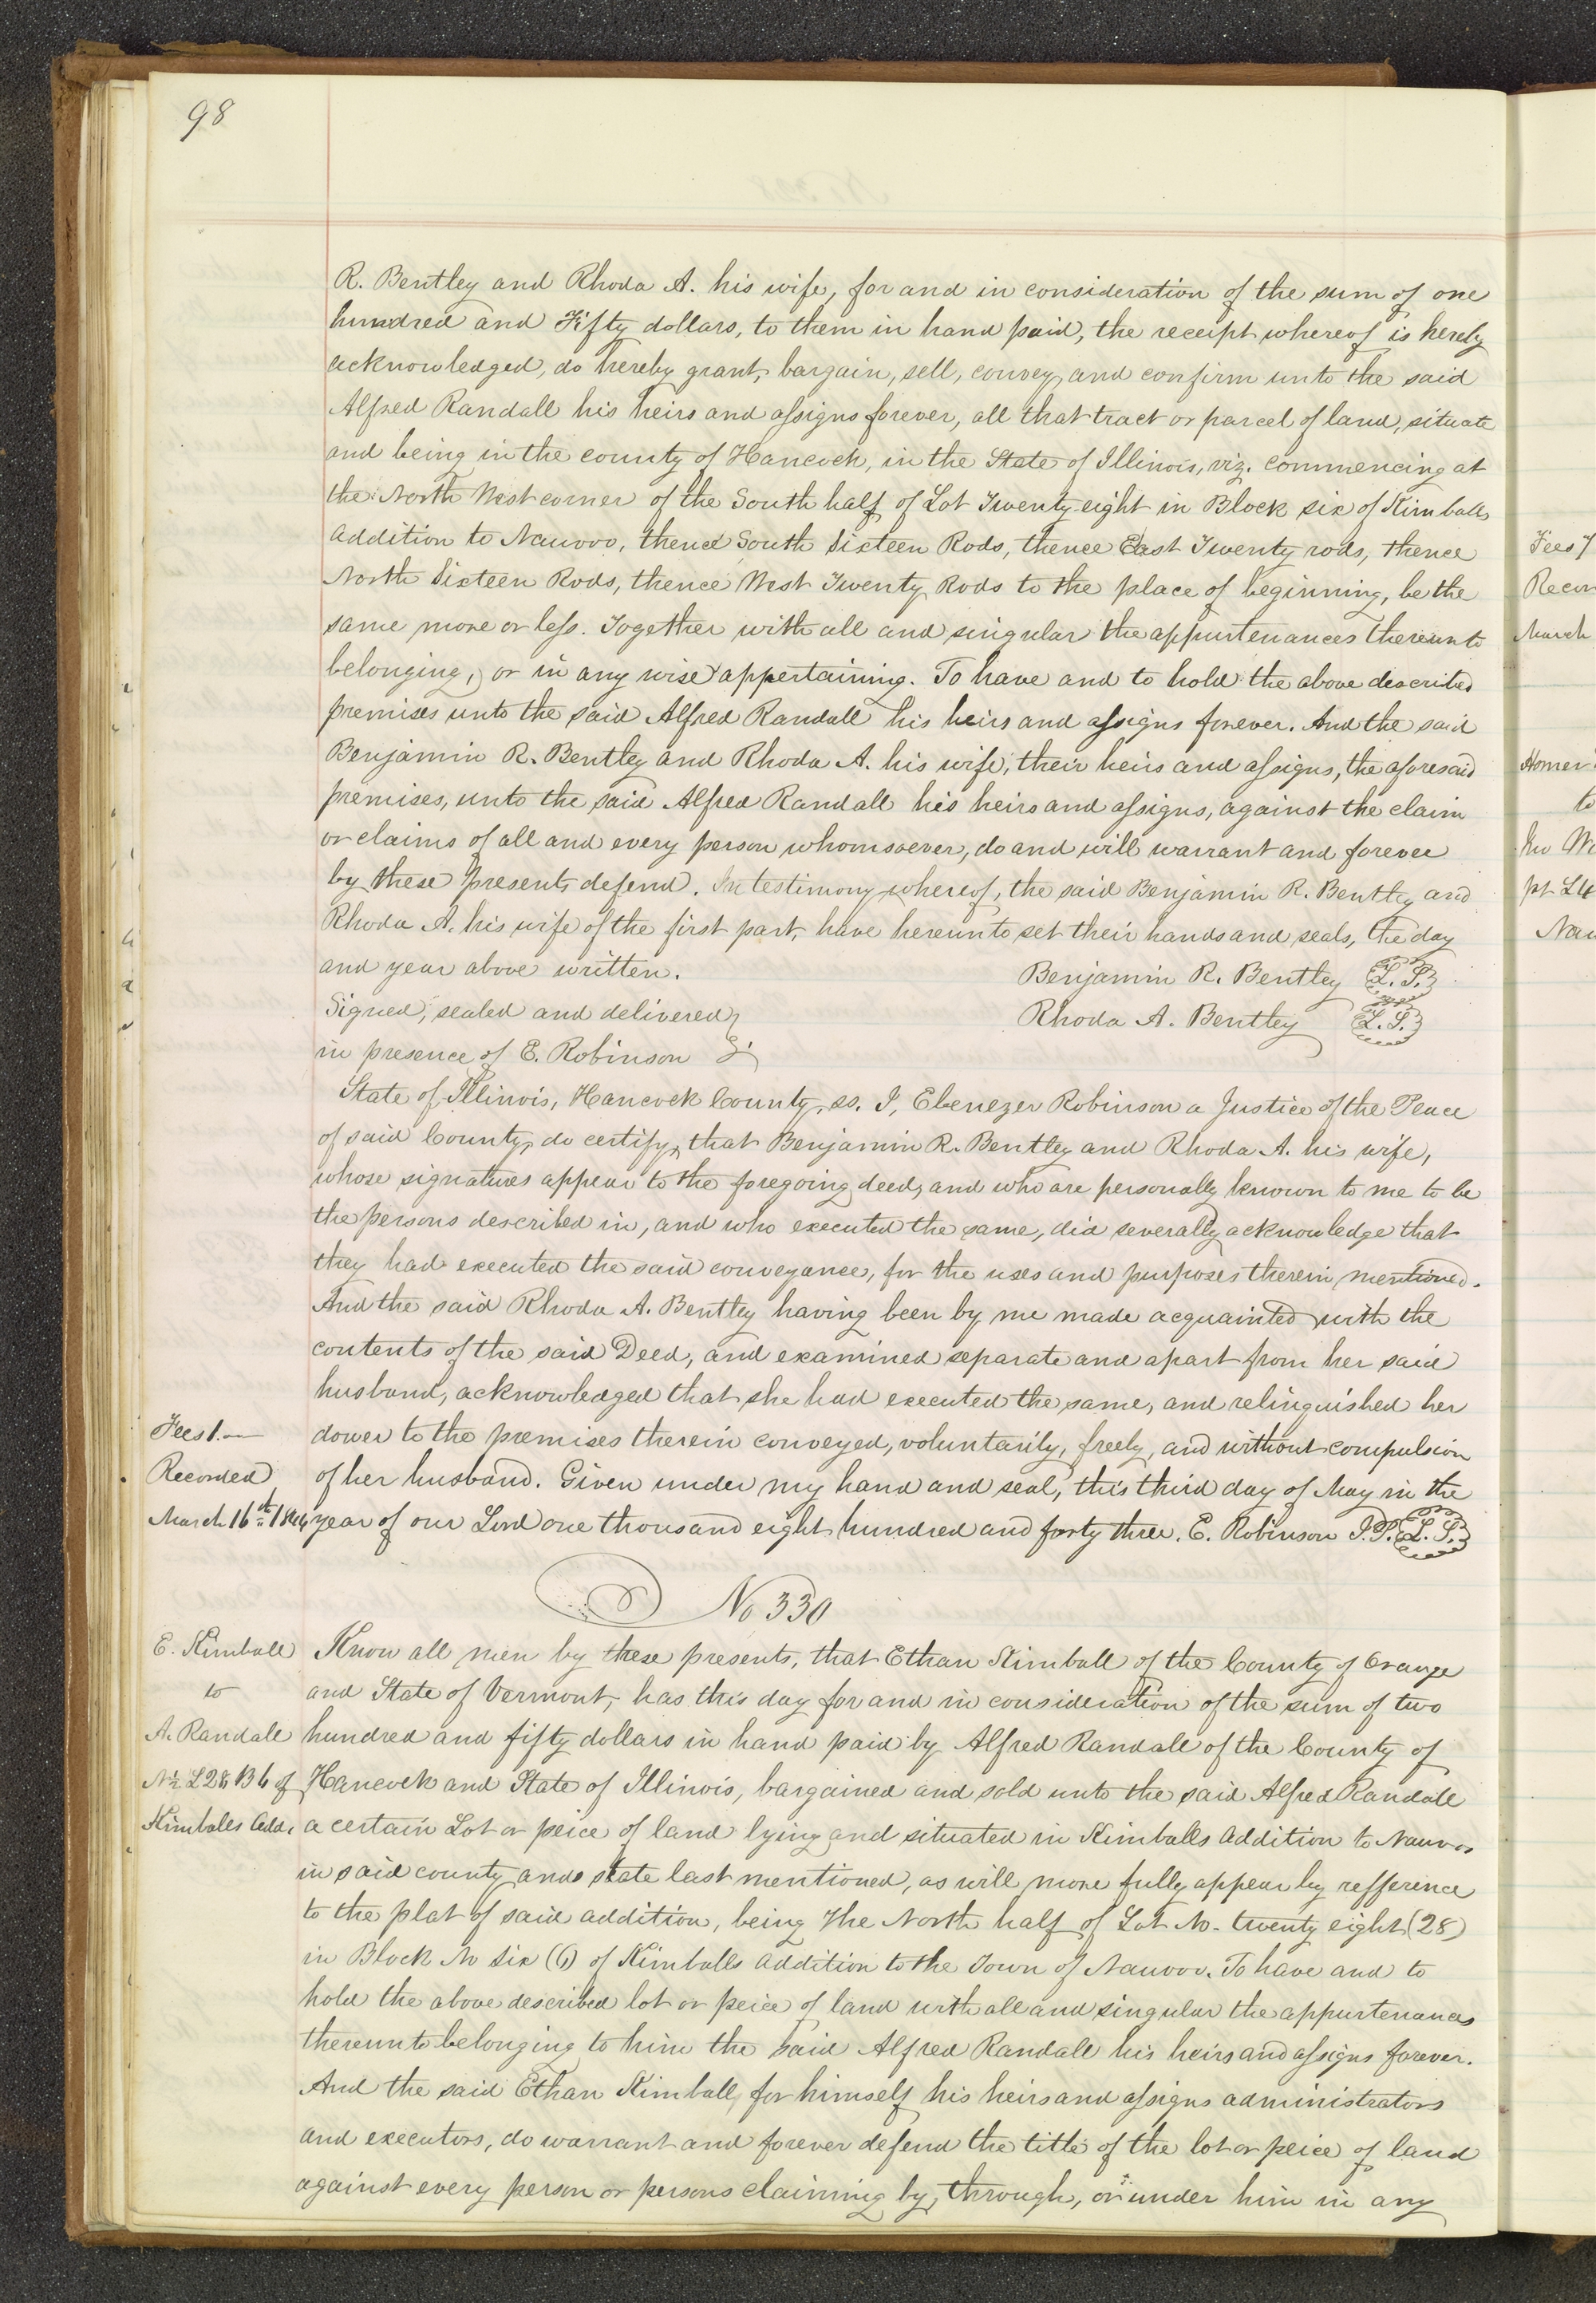 98
R. Bentley and Rhoda A. his wife, for and in consideration of the sum of one
hundred and Fifty dollars, to them in hand paid, the receipt whereof is hereby
acknowledged, do hereby grant, bargain, sell, convey, and confirm unto the said
Alfred Randall his heirs and assigns forever, all that tract or parcel of land, situate
and being in the county of Hancock, in the State of Illinois, viz. commencing at
the North West corner of the South half of Lot Twenty eight in Block six of Kimballs
addition to Nauvoo, thence South Sixteen Rods, thence East Twenty rods, thence
North Sixteen Rods, thence West Twenty Rods to the place of beginning, be the
same more or less. Together with all and singular the appurtenances thereunto
belonging, or in any wise appertaining. To have and to hold the above described
premises unto the said Alfred Randall his heirs and assigns forever. And the said
Benjamin R. Bentley and Rhoda A. his wife, their heirs and assigns, the aforesaid
premises, unto the said Alfred Randall his heirs and assigns, against the claim
or claims of all and every person whomsoever, do and will warrant and forever
by these presents defend. In testimony whereof, the said Benjamin R. Bentley and
Rhoda A. his wife of the first part, have hereunto set their hands and seals, the day
and year above written. Benjamin R. Bentley L. S.
Signed, sealed and delivered Rhoda A. Bentley L. S.
in presence of E. Robinson
State of Illinois, Hancock County, ss. I, Ebenezer Robinson a Justice of the Peace
of said County, do certify, that Benjamin R. Bentley and Rhoda A. his wife,
whose signatures appear to the foregoing deed, and who are personally known to me to be
the persons described in, and who executed the same, did severally acknowledge that
they had executed the said conveyance, for the uses and purposes therein mentioned.
And the said Rhoda A. Bentley having been by me made acquainted with the
contents of the said Deed, and examined separate and apart from her said
husband, acknowledged that she had executed the same, and relinquished her
Fees 1.— dower to the premises therein conveyed, voluntarily, freely, and without compulsion
Recorded of her husband. Given under my hand and seal, this third day of May in the
March 16th 1844 year of our Lord one thousand eight hundred and forty three. E. Robinson J.P. L. S.
No 330
E. Kimball Know all men by these presents, that Ethan Kimball of the County of Orange
to and State of Vermont, has this day for and in consideration of the sum of two
A. Randall hundred and fifty dollars in hand paid by Alfred Randall of the County of
N½ L28 B6 of Hancock and State of Illinois, bargained and sold unto the said Alfred Randall
Kimballs Add. a certain Lot or peice of land lying and situated in Kimballs Addition to Nauvoo
in said county and state last mentioned, as will more fully appear by refference
to the plat of said addition, being The North half of Lot No. twenty eight (28)
in Block No six (6) of Kimballs addition to the Town of Nauvoo. To have and to
hold the above described lot or peice of land with all and singular the appurtenances
thereunto belonging to him the said Alfred Randall his heirs and assigns forever.
And the said Ethan Kimball, for himself his heirs and assigns administrators
and executors, do warrant and forever defend the title of the lot or peice of land
against every person or persons claiming by, through, or under him in any
Fees
Recor
March
Homer
to
pt L4
Nau